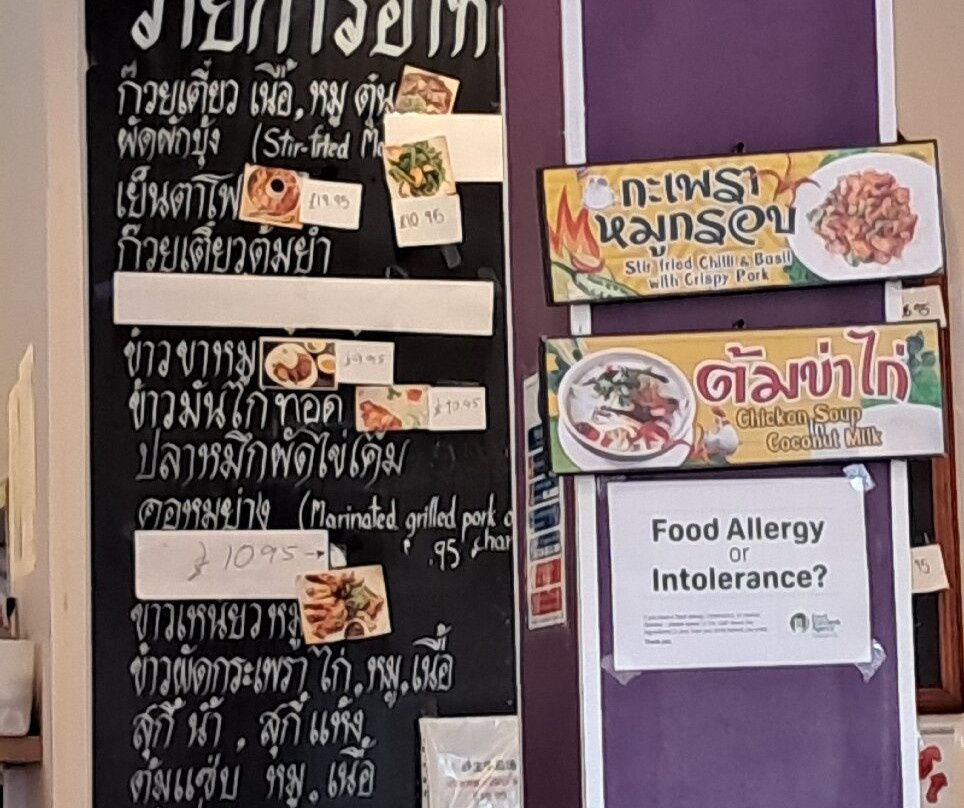 รายการอาห
ก๋วยเตี๋ยว เนื้อ, หมู ตุ๋น
ผัดผักบุ้ง (Stir-fried
เย็นตาโฟ £19.95
£10.95
ก๋วยเตี๋ยวต้มยำ
ข้าวขาหมู £9.95
ข้าวมันไก่ทอด £10.95
ปลาหมึกผัดไข่เค็ม
คอหมูย่าง (Marinated grilled pork
.95
£10.95→
ข้าวเหนียวหมู
ข้าวผัดกระเพรา ไก่, หมู, เนื้อ
สุกี้น้ำ, สุกี้แห้ง
ต้มแซ่บ หมู, เนื้อ
กะเพรา
หมูกรอบ
Stir fried Chilli & Basil
with Crispy Pork
ต้มข่าไก่
Chicken Soup
in
Coconut Milk
Food Allergy
or
Intolerance?
Thank you.
Food
Standards
Agency